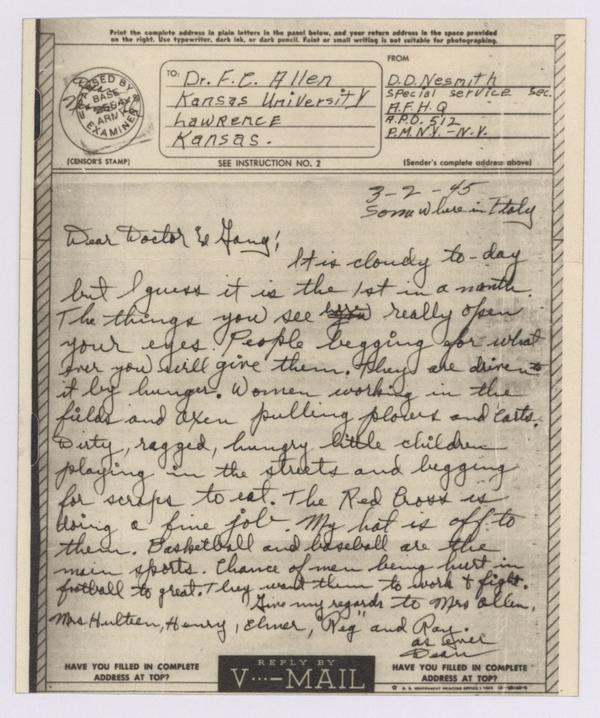 Print the complete address in plain letters in the panel below, and your return address in the space provided
on the right. Use typewriter, dark ink, or dark pencil. Faint or small writing is not suitable for photographing.
PASSED BY
BASE
ARMY
EXAMINER
(CENSOR'S STAMP)
TO:
Dr. F.C. Allen
Kansas University
Lawrence
Kansas.
SEE INSTRUCTION NO. 2
FROM
D.D. Nesmith
Special Service Sec.
A.F.H.Q
A.P.O. 512
P.M.N.Y. - N.Y.
(Sender's complete address above)
3-2-45
Somewhere in Italy
Dear Doctor & Gang!
It is cloudy to-day
but I guess it is the 1st in a month.
The things you see really open
your eyes. People begging for what
ever you will give them. They are driven to
it by hunger. Women working in the
fields and oxen pulling plows and carts.
Dirty, ragged, hungry little children
playing in the streets and begging
for scraps to eat. The Red Cross is
doing a fine job. My hat is off to
them. Basketball and baseball are the
main sports. Chance of men being hurt in
football to great. They want them to work & fight.
Give my regards to Mrs Allen,
Mrs Hulteen, Henry, Elmer, "Reg" and Ray.
as ever
Dean
HAVE YOU FILLED IN COMPLETE
ADDRESS AT TOP?
REPLY BY
V···—MAIL
HAVE YOU FILLED IN COMPLETE
ADDRESS AT TOP?